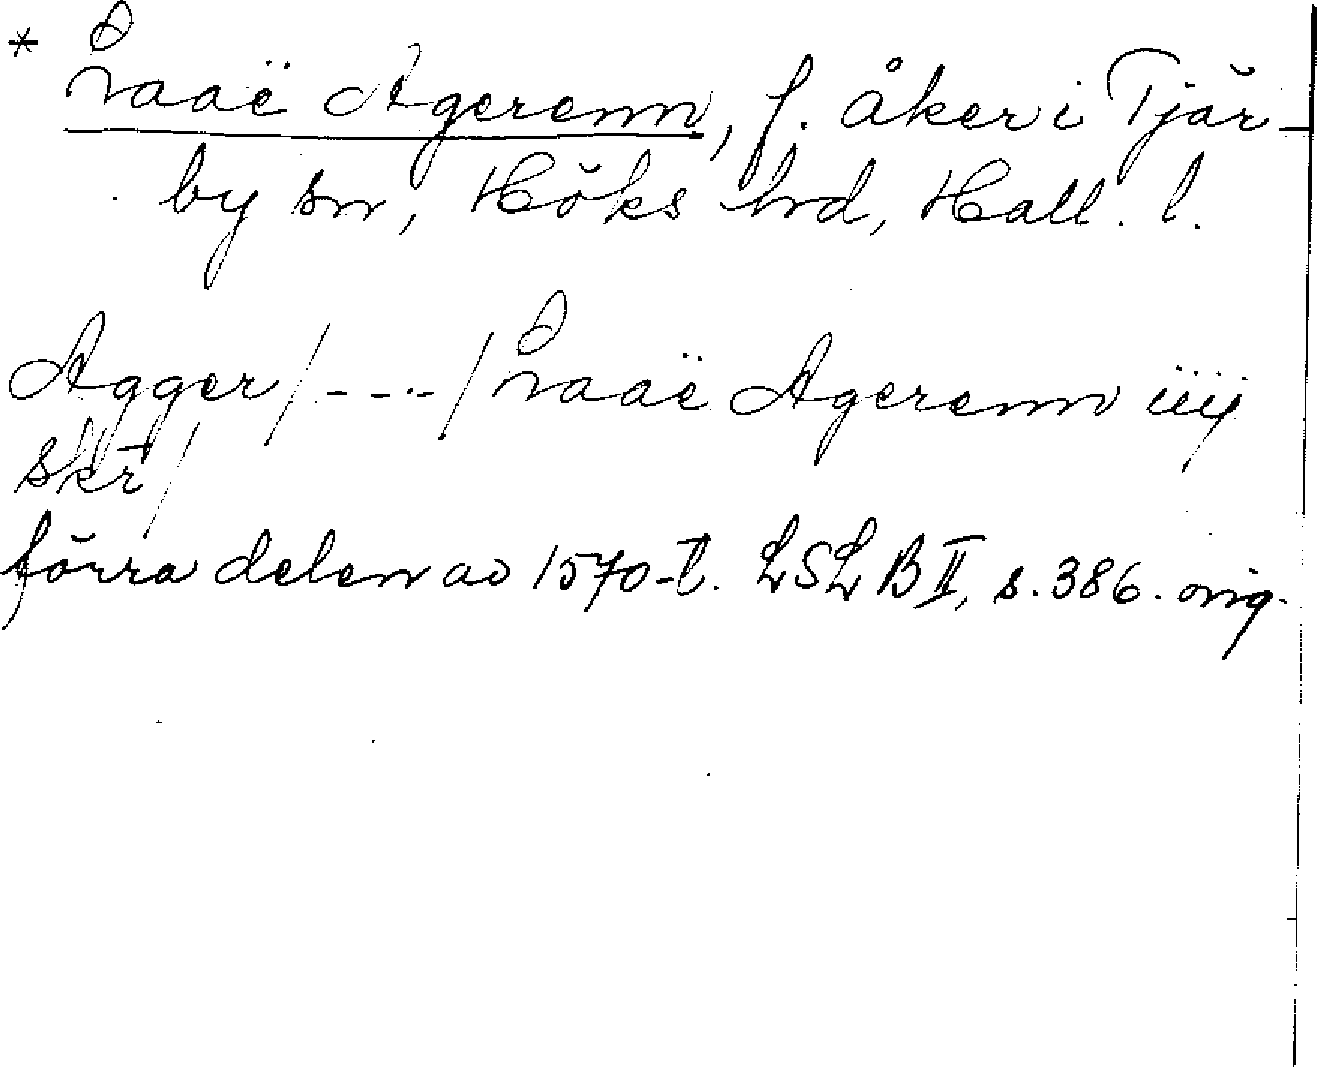 * Vaaë Agerenn, f. åker i Tjär-
by sn, Höks hrd, Hall. l.
Agger /----/ Vaaë Agerenn iiij
skr̄ /
förra delen av 1570-t. LSLB II, s. 386. orig.